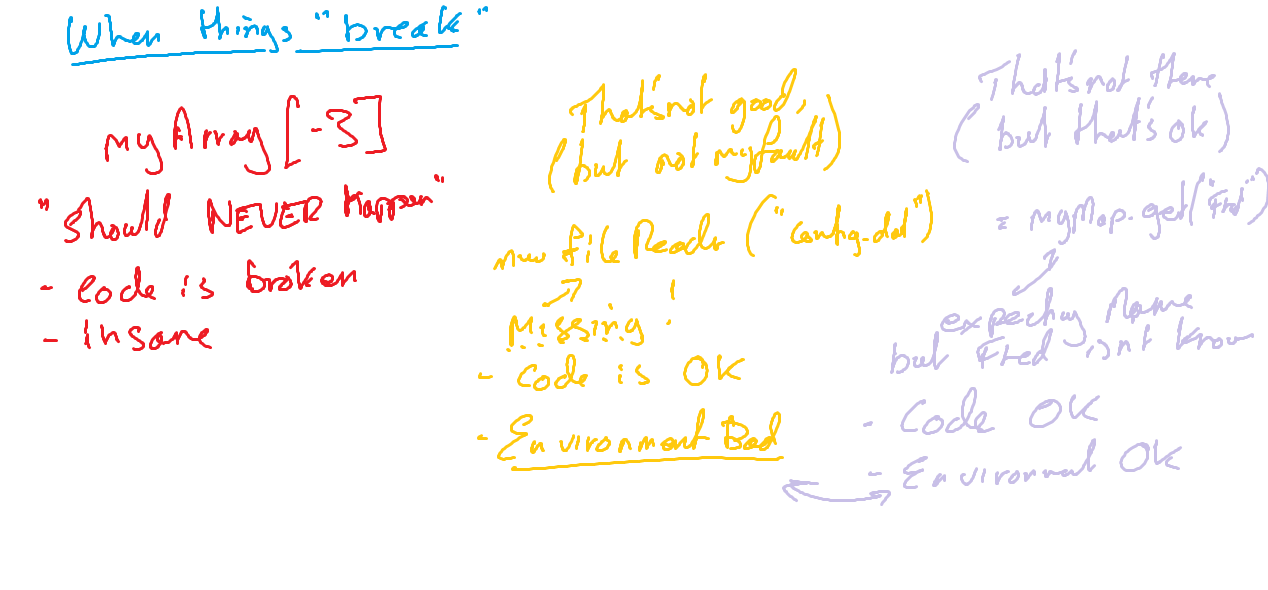 When things "break"
myArray[-3]
"Should NEVER happen"
- Code is broken
- Insane
That's not good,
(but not my fault)
new FileReader("config.dat")
Missing !
- Code is OK
- Environment Bad
That's not there
(but that's ok)
= myMap.get("Fred")
expecting Name
but Fred isn't know
- Code OK
- Environment OK